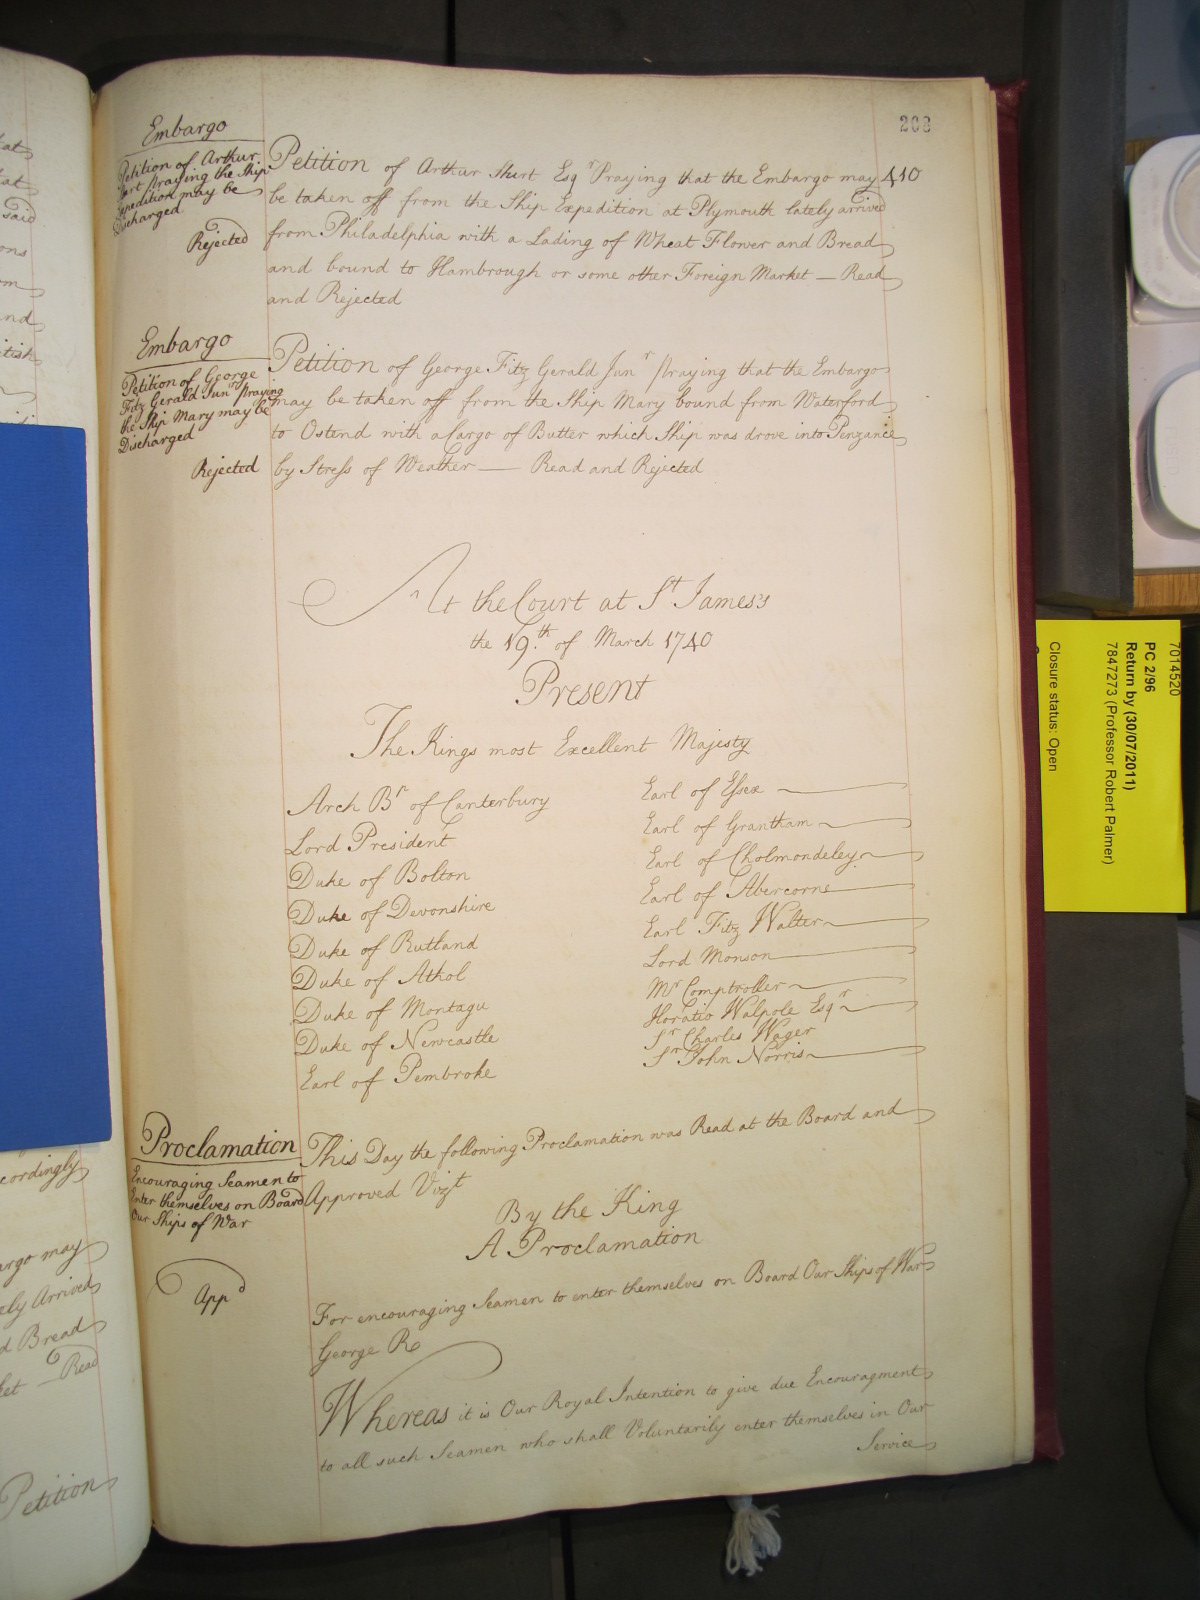 208
410
Embargo
Petition of Arthur
praying the Ship
Expedition may be
Discharged
Rejected
Petition of Arthur Stert Esqr Praying that the Embargo may
be taken off from the Ship Expedition at Plymouth lately arrived
from Philadelphia with a Lading of Wheat Flower and Bread
and bound to Hambrough or some other Foreign Market — Read
and Rejected
Embargo
Petition of George
Fitz Gerald Junr praying
the Ship Mary may be
Discharged
Rejected
Petition of George Fitz Gerald Junr praying that the Embargo
may be taken off from the Ship Mary bound from Waterford
to Ostend with a Cargo of Butter which Ship was drove into Penzance
by Stress of Weather — Read and Rejected
At the Court at St James's
the 19th of March 1740
Present
The Kings most Excellent Majesty
Arch Bp of Canterbury
Lord President
Duke of Bolton
Duke of Devonshire
Duke of Rutland
Duke of Athol
Duke of Montagu
Duke of Newcastle
Earl of Pembroke
Earl of Essex
Earl of Grantham
Earl of Cholmondeley
Earl of Abercorne
Earl Fitz Walter
Lord Monson
Mr Comptroller
Horatio Walpole Esqr
Sr Charles Wager
Sr John Norris
Proclamation
Encouraging Seamen to
Enter themselves on Board
Our Ships of War
Appd
This Day the following Proclamation was Read at the Board and
Approved Vizt
By the King
A Proclamation
For encouraging Seamen to enter themselves on Board Our Ships of War
George R
Whereas it is Our Royal Intention to give due Encouragment
to all such Seamen who shall Voluntarily enter themselves in Our
Service
said
cordingly
may
Arrived
Bread
Read
Petition
7014520
PC 2/96
Return by (30/07/2011)
7847273 (Professor Robert Palmer)
Closure status: Open